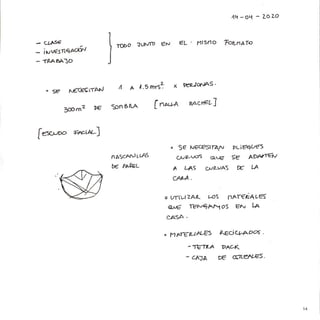 14-04-2020
- CLASE
- INVESTIGACIÓN
- TRABAJO
TODO JUNTO EN EL MISMO FORMATO
• SE NECESITAN 1 A 1.5 mrs² x PERSONAS.
300m² DE SOMBRA [MALLA RACHEL]
[ESCUDO FACIAL]
MASCARILLAS
DE PAPEL
• SE NECESITAN PLIEGUES
CURVOS QUE SE ADAPTEN
A LAS CURVAS DE LA
CARA.
• UTILIZAR LOS MATERIALES
QUE TENGAMOS EN LA
CASA.
• MATERIALES RECICLADOS.
- TETRA PACK
- CAJA DE CEREALES.